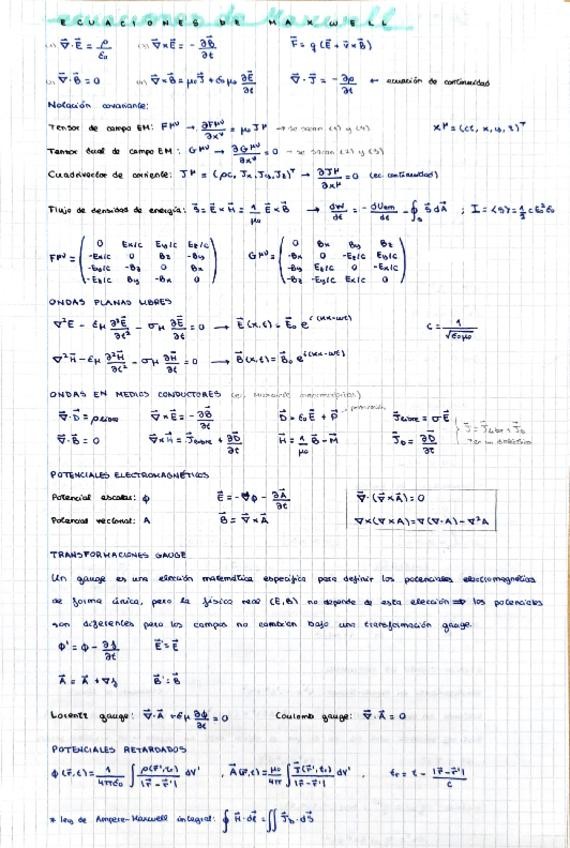 ECUACIONES DE MAXWELL
(1) ∇⃗·E⃗ = ρ/ε₀   (3) ∇⃗×E⃗ = -∂B⃗/∂t   F⃗ = q(E⃗ + v⃗×B⃗)
(2) ∇⃗·B⃗ = 0   (4) ∇⃗×B⃗ = μ₀J⃗ + ε₀μ₀ ∂E⃗/∂t   ∇⃗·J⃗ = -∂ρ/∂t ← ecuación de continuidad
Notación covariante:
Tensor de campo EM: F^μν → ∂F^μν/∂x^ν = μ₀J^μ → se sacan (1) y (4)   x^μ = (ct, x, y, z)^T
Tensor dual de campo EM: G^μν → ∂G^μν/∂x^ν = 0 → se sacan (2) y (3)
Cuadrivector de corriente: J^μ = (ρc, Jx, Jy, Jz)^T → ∂J^μ/∂x^μ = 0 (ec. continuidad)
Flujo de densidad de energía: S⃗ = E⃗×H⃗ = 1/μ₀ E⃗×B⃗ → dW/dt = -dUem/dt - ∮_S S⃗dA⃗ ; I = <S> = 1/2 cE₀²ε₀
F^μν = ( 0 Ex/c Ey/c Ez/c   G^μν = ( 0 Bx By Bz
-Ex/c 0 Bz -By   -Bx 0 -Ez/c Ey/c
-Ey/c -Bz 0 Bx   -By Ez/c 0 -Ex/c
-Ez/c By -Bx 0 )   -Bz -Ey/c Ex/c 0 )
ONDAS PLANAS LIBRES
∇²E⃗ - εμ ∂²E⃗/∂t² - σμ ∂E⃗/∂t = 0 → E⃗(x,t) = E⃗₀ e^i(kx-ωt)   c = 1/√ε₀μ₀
∇²H⃗ - εμ ∂²H⃗/∂t² - σμ ∂H⃗/∂t = 0 → B⃗(x,t) = B⃗₀ e^i(kx-ωt)
ONDAS EN MEDIOS CONDUCTORES (ec. Maxwell macroscópicas)
∇⃗·D⃗ = ρlibre   ∇⃗×E⃗ = -∂B⃗/∂t   D⃗ = ε₀E⃗ + P⃗   J⃗libre = σE⃗
∇⃗·B⃗ = 0   ∇⃗×H⃗ = J⃗libre + ∂D⃗/∂t   H⃗ = 1/μ₀ B⃗ - M⃗   J⃗_D = ∂D⃗/∂t   J⃗ = J⃗libre + J⃗_D
POTENCIALES ELECTROMAGNÉTICOS
Potencial escalar: ϕ   E⃗ = -∇⃗ϕ - ∂A⃗/∂t   ∇⃗·(∇⃗×A⃗) = 0
Potencial vectorial: A   B⃗ = ∇⃗×A⃗   ∇×(∇×A) = ∇(∇·A) - ∇²A
TRANSFORMACIONES GAUGE
Un gauge es una elección matemática específica para definir los potenciales electromagnéticos
de forma única, pero la física real (E, B) no depende de esta elección ⇒ los potenciales
son diferentes pero los campos no cambian bajo una transformación gauge.
ϕ' = ϕ - ∂f/∂t   E⃗' = E⃗
A⃗ = A⃗ + ∇f   B⃗' = B⃗
Lorentz gauge: ∇⃗·A⃗ + εμ ∂ϕ/∂t = 0   Coulomb gauge: ∇⃗·A⃗ = 0
POTENCIALES RETARDADOS
ϕ(r⃗,t) = 1/4πε₀ ∫ ρ(r⃗',tr)/|r⃗-r⃗'| dV' , A⃗(r⃗,t) = μ₀/4π ∫ J⃗(r⃗',tr)/|r⃗-r⃗'| dV' , tr = t - |r⃗-r⃗'|/c
* ley de Ampere-Maxwell integral: ∮ H⃗·dℓ⃗ = ∬ J⃗_D·dS⃗